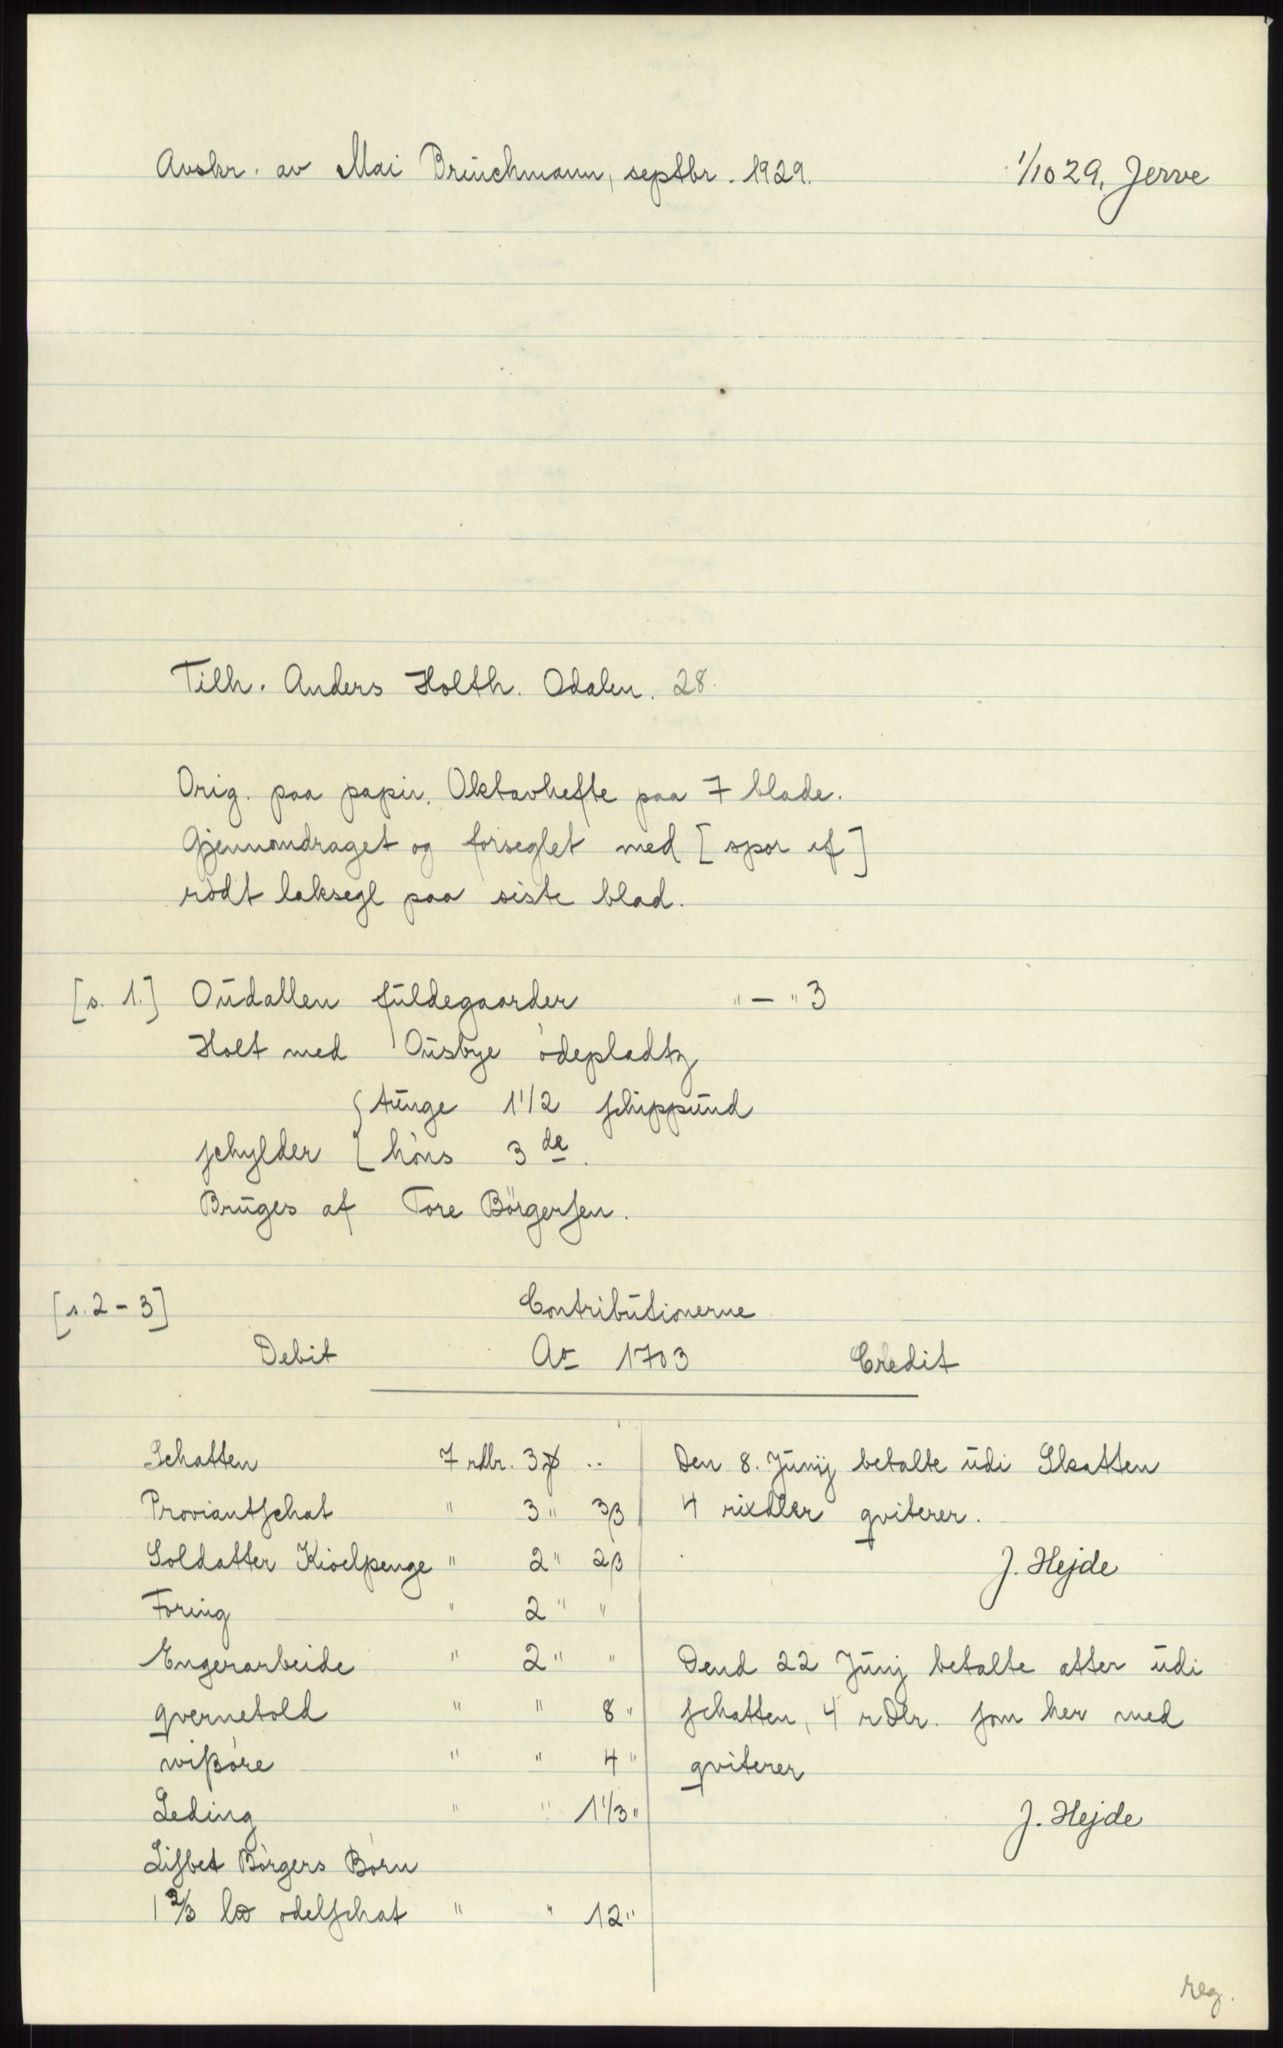 Avskr. av Mai Brüchmann, septbr. 1929. 1/10 29, Jerve
Tilh. Anders Holth. Odalen. 28.
Orig. paa papir. Oktavhefte paa 7 blade.
Gjennomdraget og forseglet med [spor af]
rødt laksegl paa siste blad.
[s. 1.] Oudallen fuldegaarder " — " 3
Holt med Ousbye ødepladtz
{ tunge 1 1/2 schippund
schylder { høns 3 de.
Bruges af Tore Börgersen.
[s. 2 - 3] Contributionerne
Debit Ao 1703 Credit
Schatten 7 rdlr. 3 ..
Proviantschat " 3 " 3 β
Soldatter Kioelpenge " 2 " 2 β
Foring " 2 " "
Engerarbeide " 2 " "
qvernetold " " 8 "
wißøre " " 4 "
Leding " " 1 1/3 "
Lisbet Børgers Børn
1 2/3 odelschat " " 12 "
Den 8. Junij betalte udi Skatten
4 rixdler qviterer.
J. Hejde
Dend 22 Junj betalte atter udi
schatten, 4 rDlr. som her med
qviterer
J. Hejde
reg.